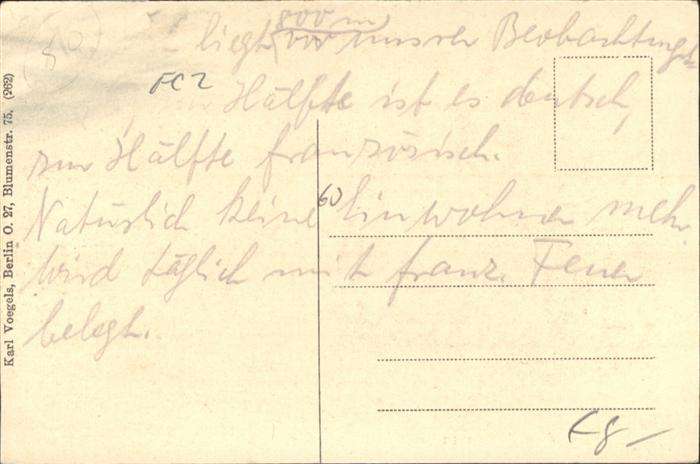 800 m
liegt vor unserer Beobachtungs
FC2
Hälfte ist es deutsch,
zur Hälfte französisch.
60
Natürlich keine Einwohner mehr
Wird täglich mit franz. Feuer
belegt.
Karl Voegels, Berlin O. 27, Blumenstr. 75. (262)